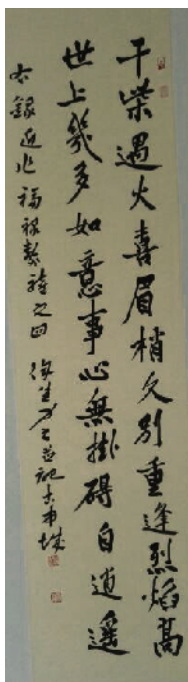 干柴遇火喜眉梢久别重逢烈焰高
世上幾多如意事心無掛碍自逍遥
右錄近作福祿壽詩之四